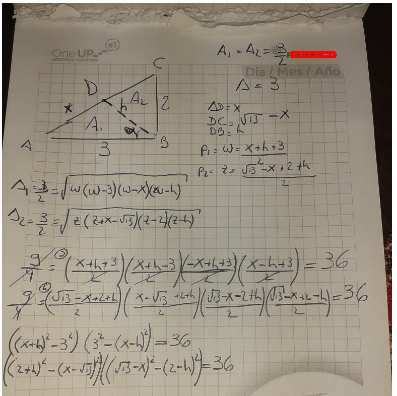 OneUP #1
A₁ = A₂ = 3/2
Día / Mes / Año
A = 3
C
D
x
h
A₂
2
A₁
A
3
B
AD = x
DC = √13 - x
DB = h
P₁ = w = x+h+3 / 2
P₂ = z = √13 - x + 2 + h / 2
A₁ = 3/2 = √w(w-3)(w-x)(w-h)
A₂ = 3/2 = √z(z+x-√13)(z-2)(z-h)
9/4 = (x+h+3 / 2)(x+h-3 / 2)(-x+h+3 / 2)(x-h+3 / 2) = 36
9/4 = (√13-x+2+h / 2)(x-√13+2+h / 2)(√13-x-2+h / 2)(√13-x+2-h / 2) = 36
((x+h)² - 3²)(3² - (x-h)²) = 36
((2+h)² - (x-√13)²)((√13-x)² - (2-h)²) = 36